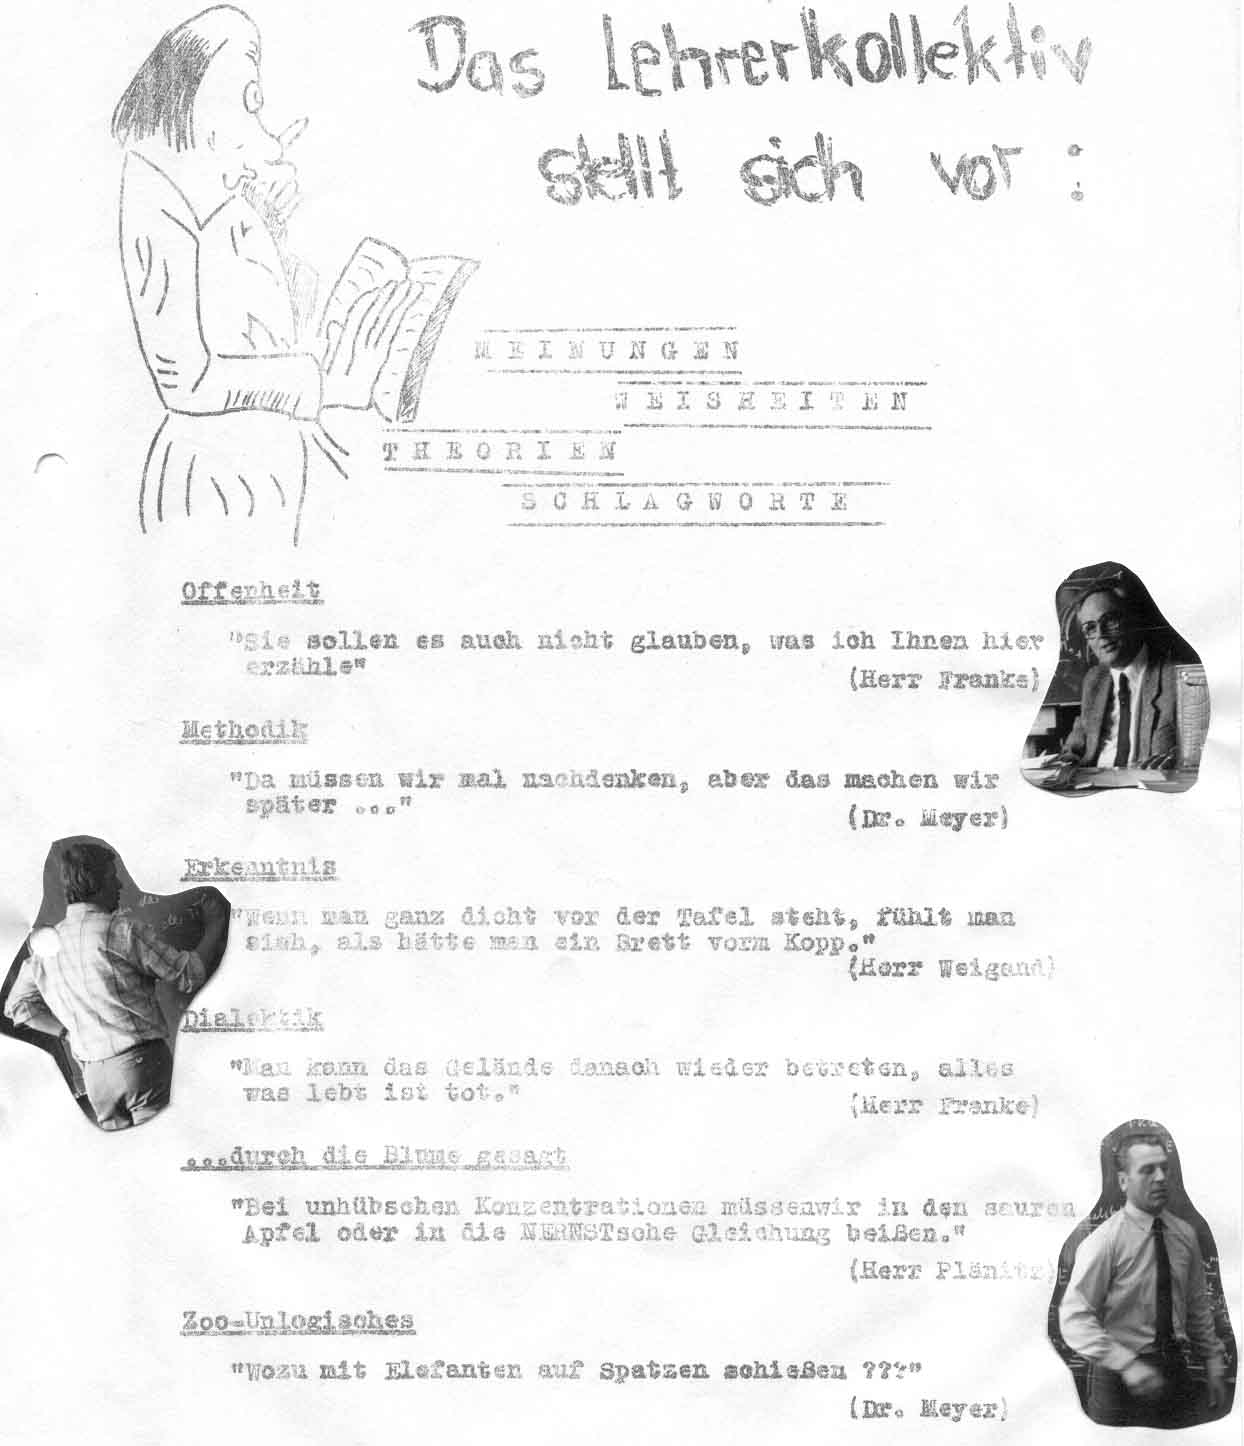 Das Lehrerkollektiv
stellt sich vor :
MEINUNGEN
WEISHEITEN
THEORIEN
SCHLAGWORTE
Offenheit
"Sie sollen es auch nicht glauben, was ich Ihnen hier
erzähle"
(Herr Franke)
Methodik
"Da müssen wir mal nachdenken, aber das machen wir
später ..."
(Dr. Meyer)
Erkenntnis
"Wenn man ganz dicht vor der Tafel steht, fühlt man
sich, als hätte man ein Brett vorm Kopp."
(Herr Weigand)
Dialektik
"Man kann das Gelände danach wieder betreten, alles
was lebt ist tot."
(Herr Franke)
...durch die Blume gesagt
"Bei unhübschen Konzentrationen müssenwir in den sauren
Apfel oder in die NERNSTsche Gleichung beißen."
(Herr Plänitz)
Zoo-Unlogisches
"Wozu mit Elefanten auf Spatzen schießen ???"
(Dr. Meyer)